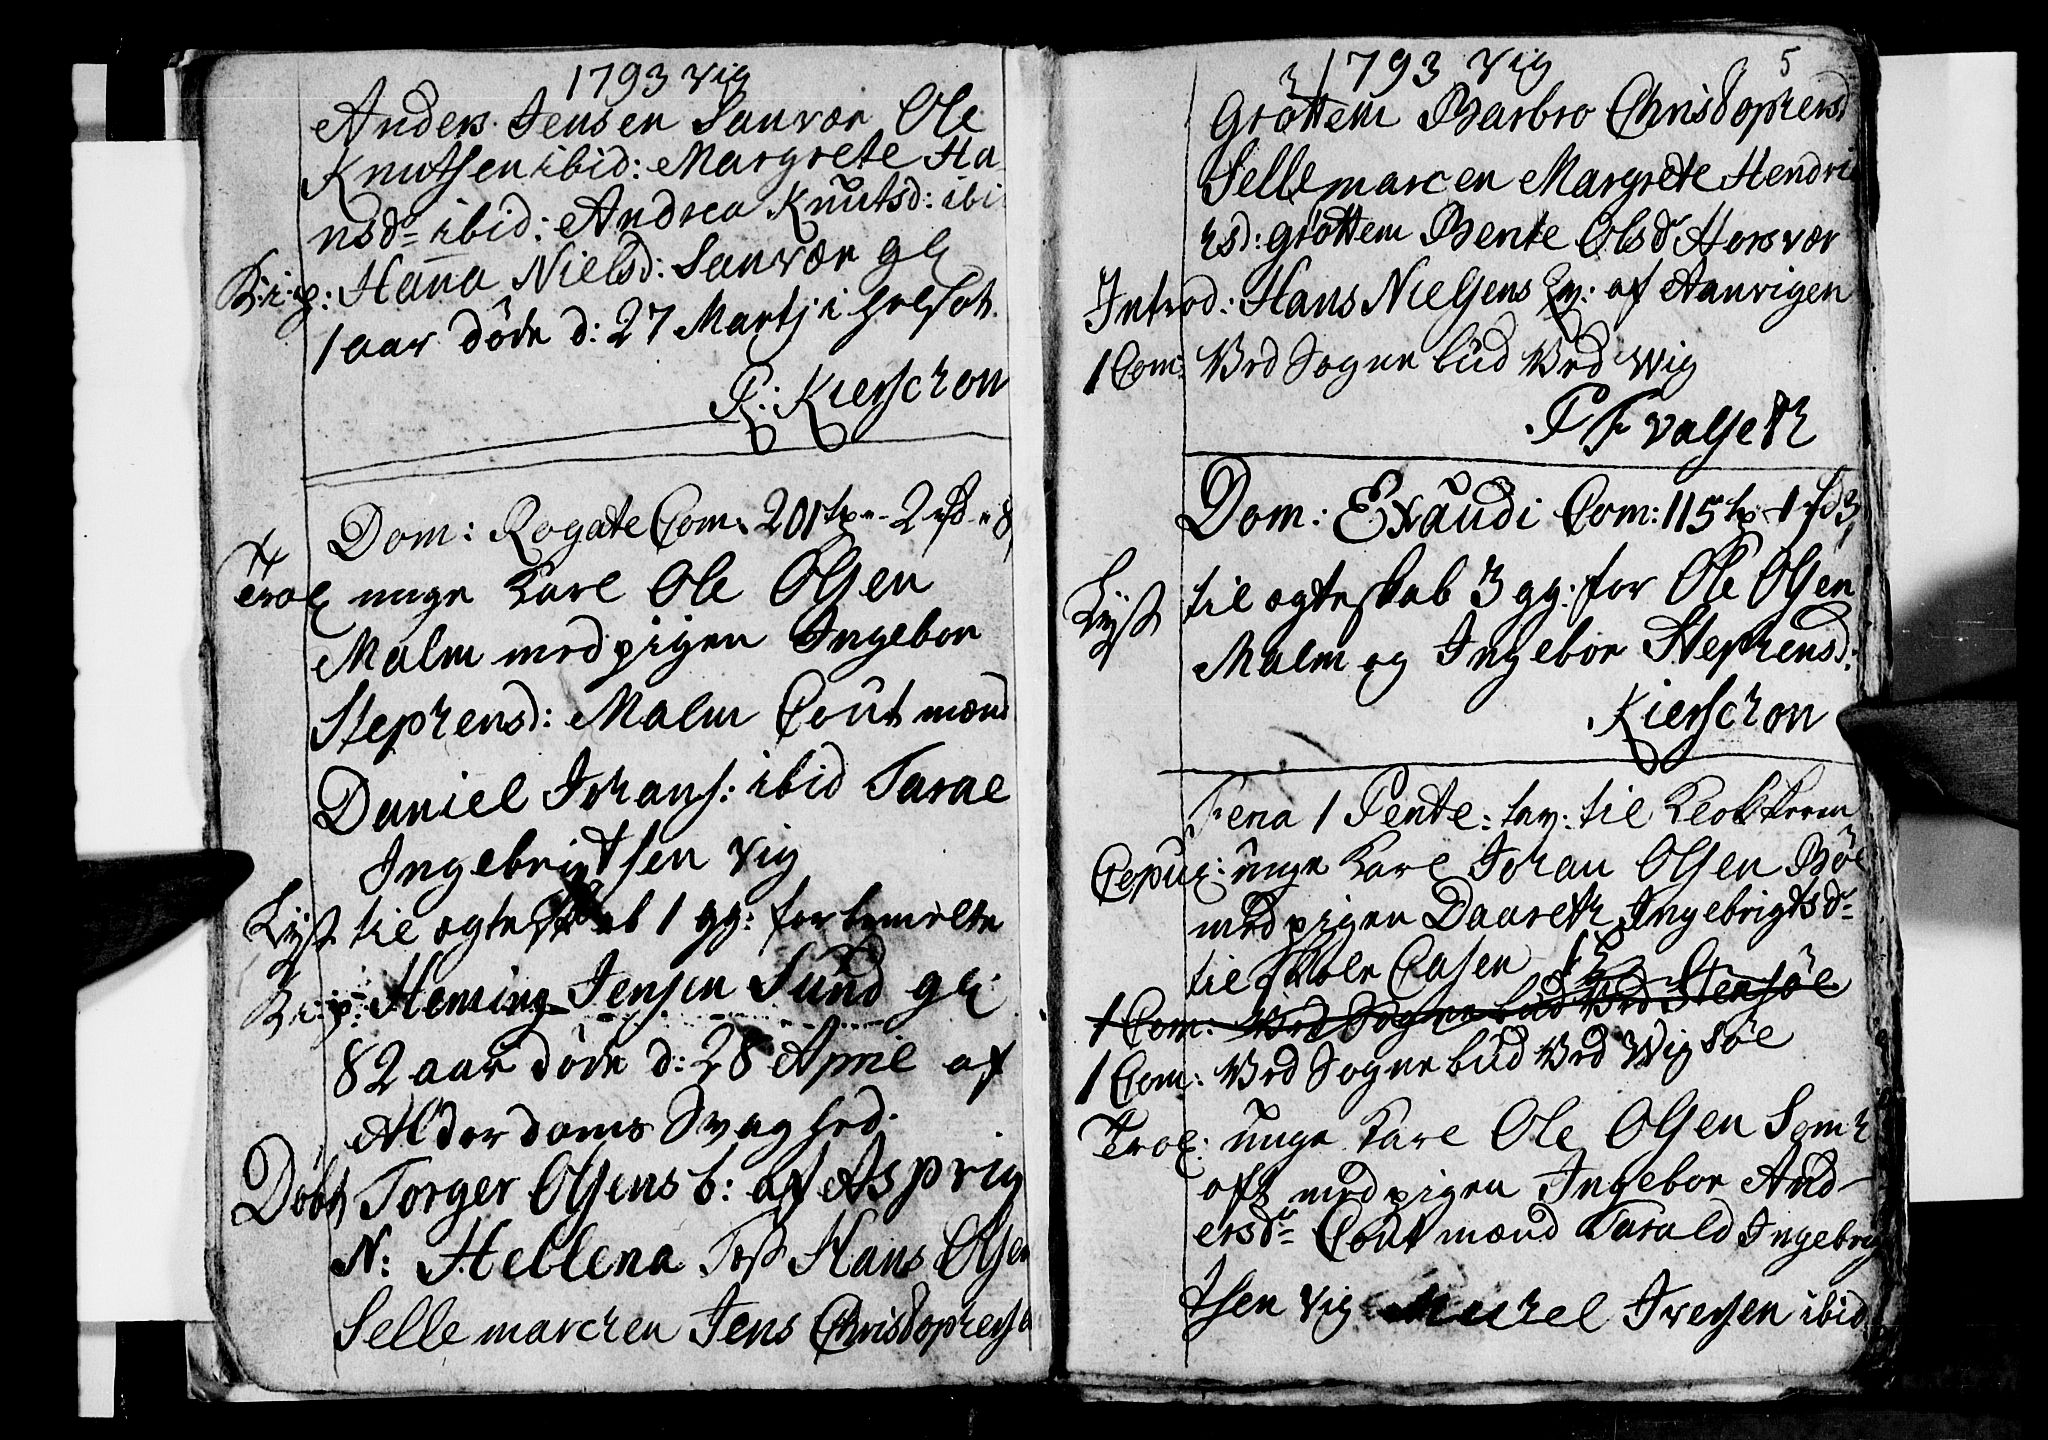 1793 Vig
Anders Jensen Sanvær Ole
Knutsen ibid: Margrete Ha-
nsd= ibid: Andrea Knutsd: ibi
B: i: p: Hanna Nielsd: Sanvær gl
1 aar döde d: 27 Martj i
P: Kierschou
Dom: Rogate Com: 201
Trol unge Karl Ole Olsen
Malm med pigen Ingebor
Stephensd: Malm Cout mænd
Daniel Johans: ibid Taral
Ingebrigtsen Vig
Lyst til ægteskab 1 gg: for bemelte
B: i: p: Heming Jensen Sund gl:
82 aar döde d: 28 April af
Alderdoms Svaghed.
Döbt Torger Olsens b: af Aspvig
N: Hellena Tess Hans Olsen
Sellemarchen Jens Christophersen
1793 Vig 5
Gröttem Barbro Christophersd
Sellemarcen Margrete Hendri
chsd: Gröttem Bente Olsd Horsvær
Introd: Hans Nielsens Qv: af Aanvigen
1 Com: Ved Sogne bud Ved Wig
P F Valseth
Dom: Exaudi Com: 115
Lyst til ægteskab 3 gg: for Ole Olsen
Malm og Ingebor Stephensd:
Kierschou
Fena 1 Pente: hav: til Klokkeren
Copul: unge Karl Johan Olsen Böl
med pigen Daareth Ingebrigtsd=
til
1 Com: Ved Sogne bud Ved Stensöe
1 Com: Ved Sogne bud Ved Wigsöe
Trol: unge Karl Ole Olsen Somh
oft med pigen Ingebor And-
ersd= Cout mænd Tarald Ingebrig
tsen Vig Michel Iversen ibid